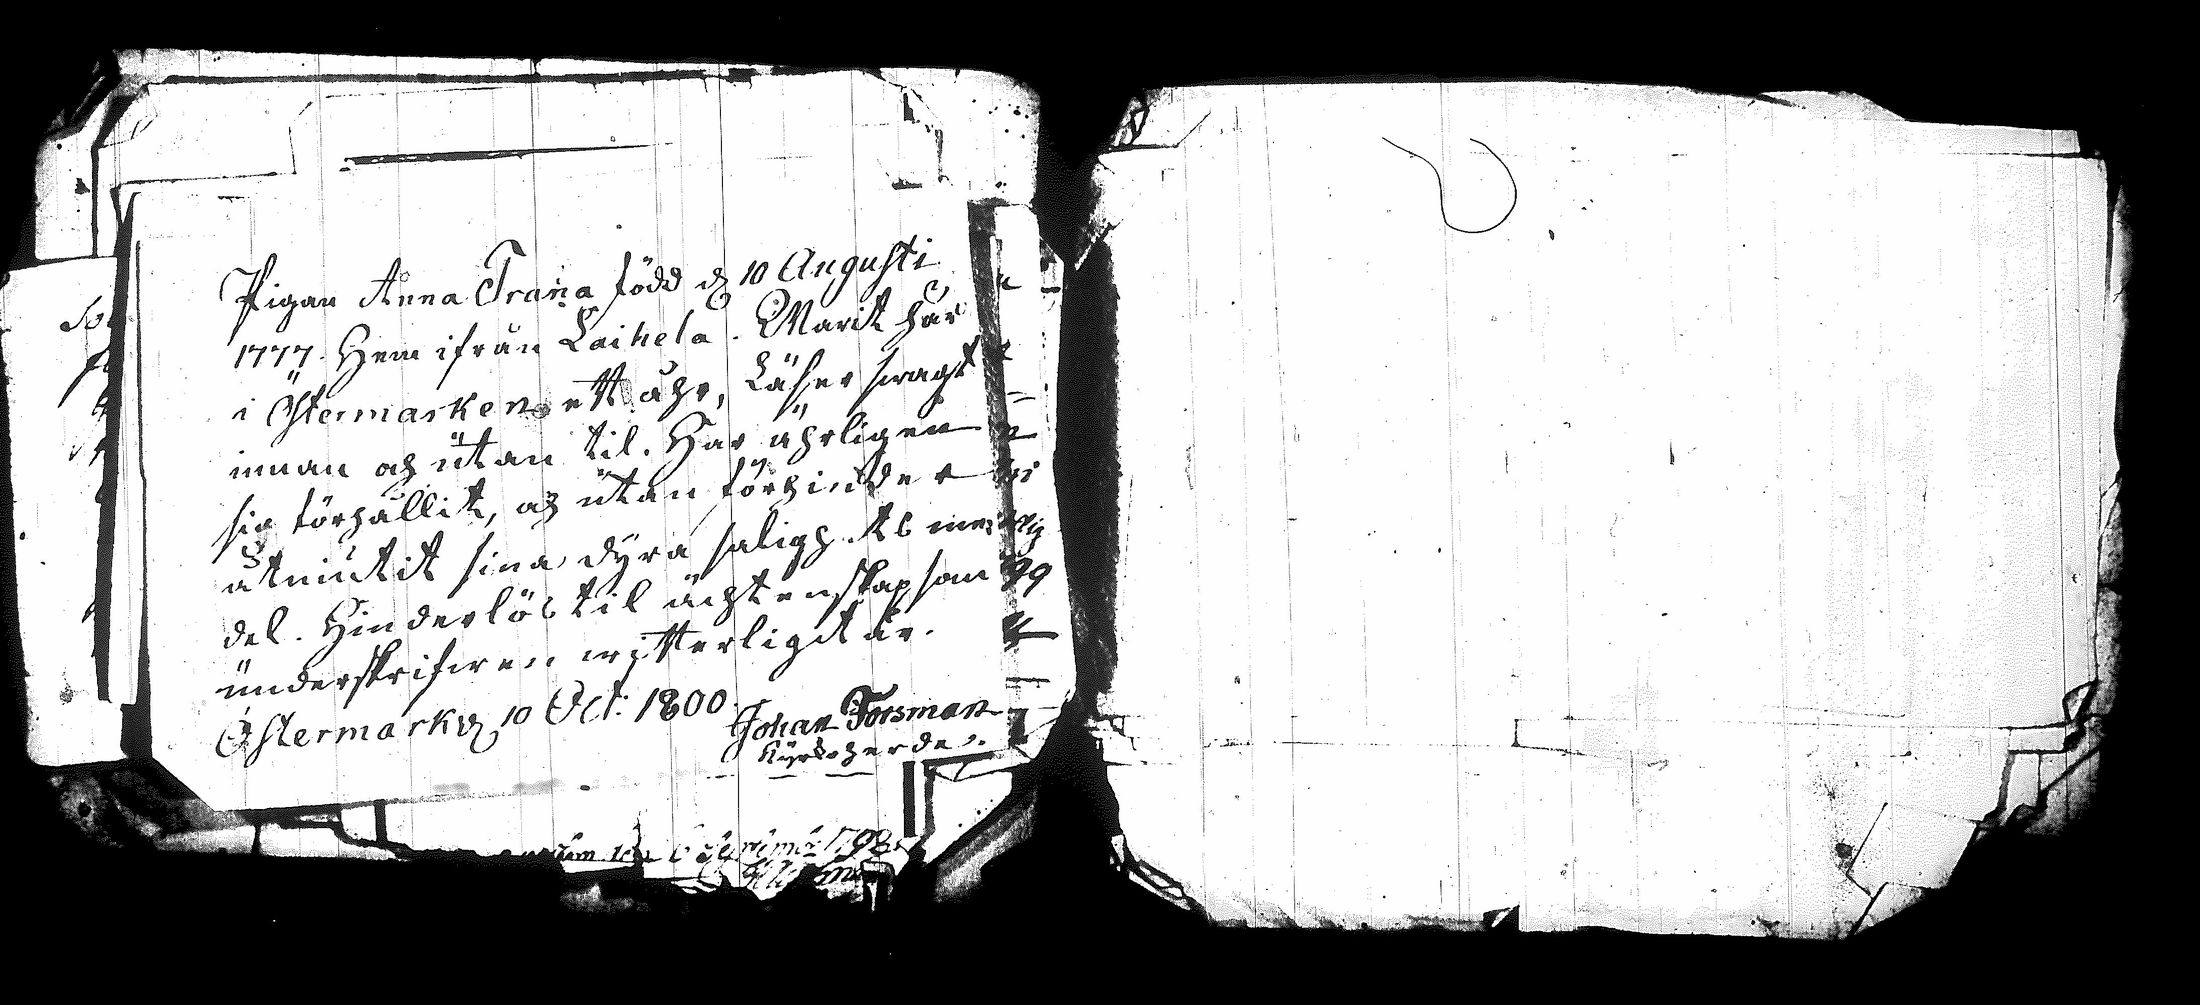 Pigan Anna Frana född d. 10 Augusti
1777. Hem ifrån Laihela. Warit här
i Östermarken ett åhr, Läser swagt
innan och utan til. Har ährligen
sig förhållit, och utan förhinder
åtniutit sina dyra saligh.tes me
del. Hinderlös til ächtenskap som
underskrifwen witterligit är.
Östermark d. 10 Oct: 1800.
Johan Forsman
Kyrkoherde.
1798